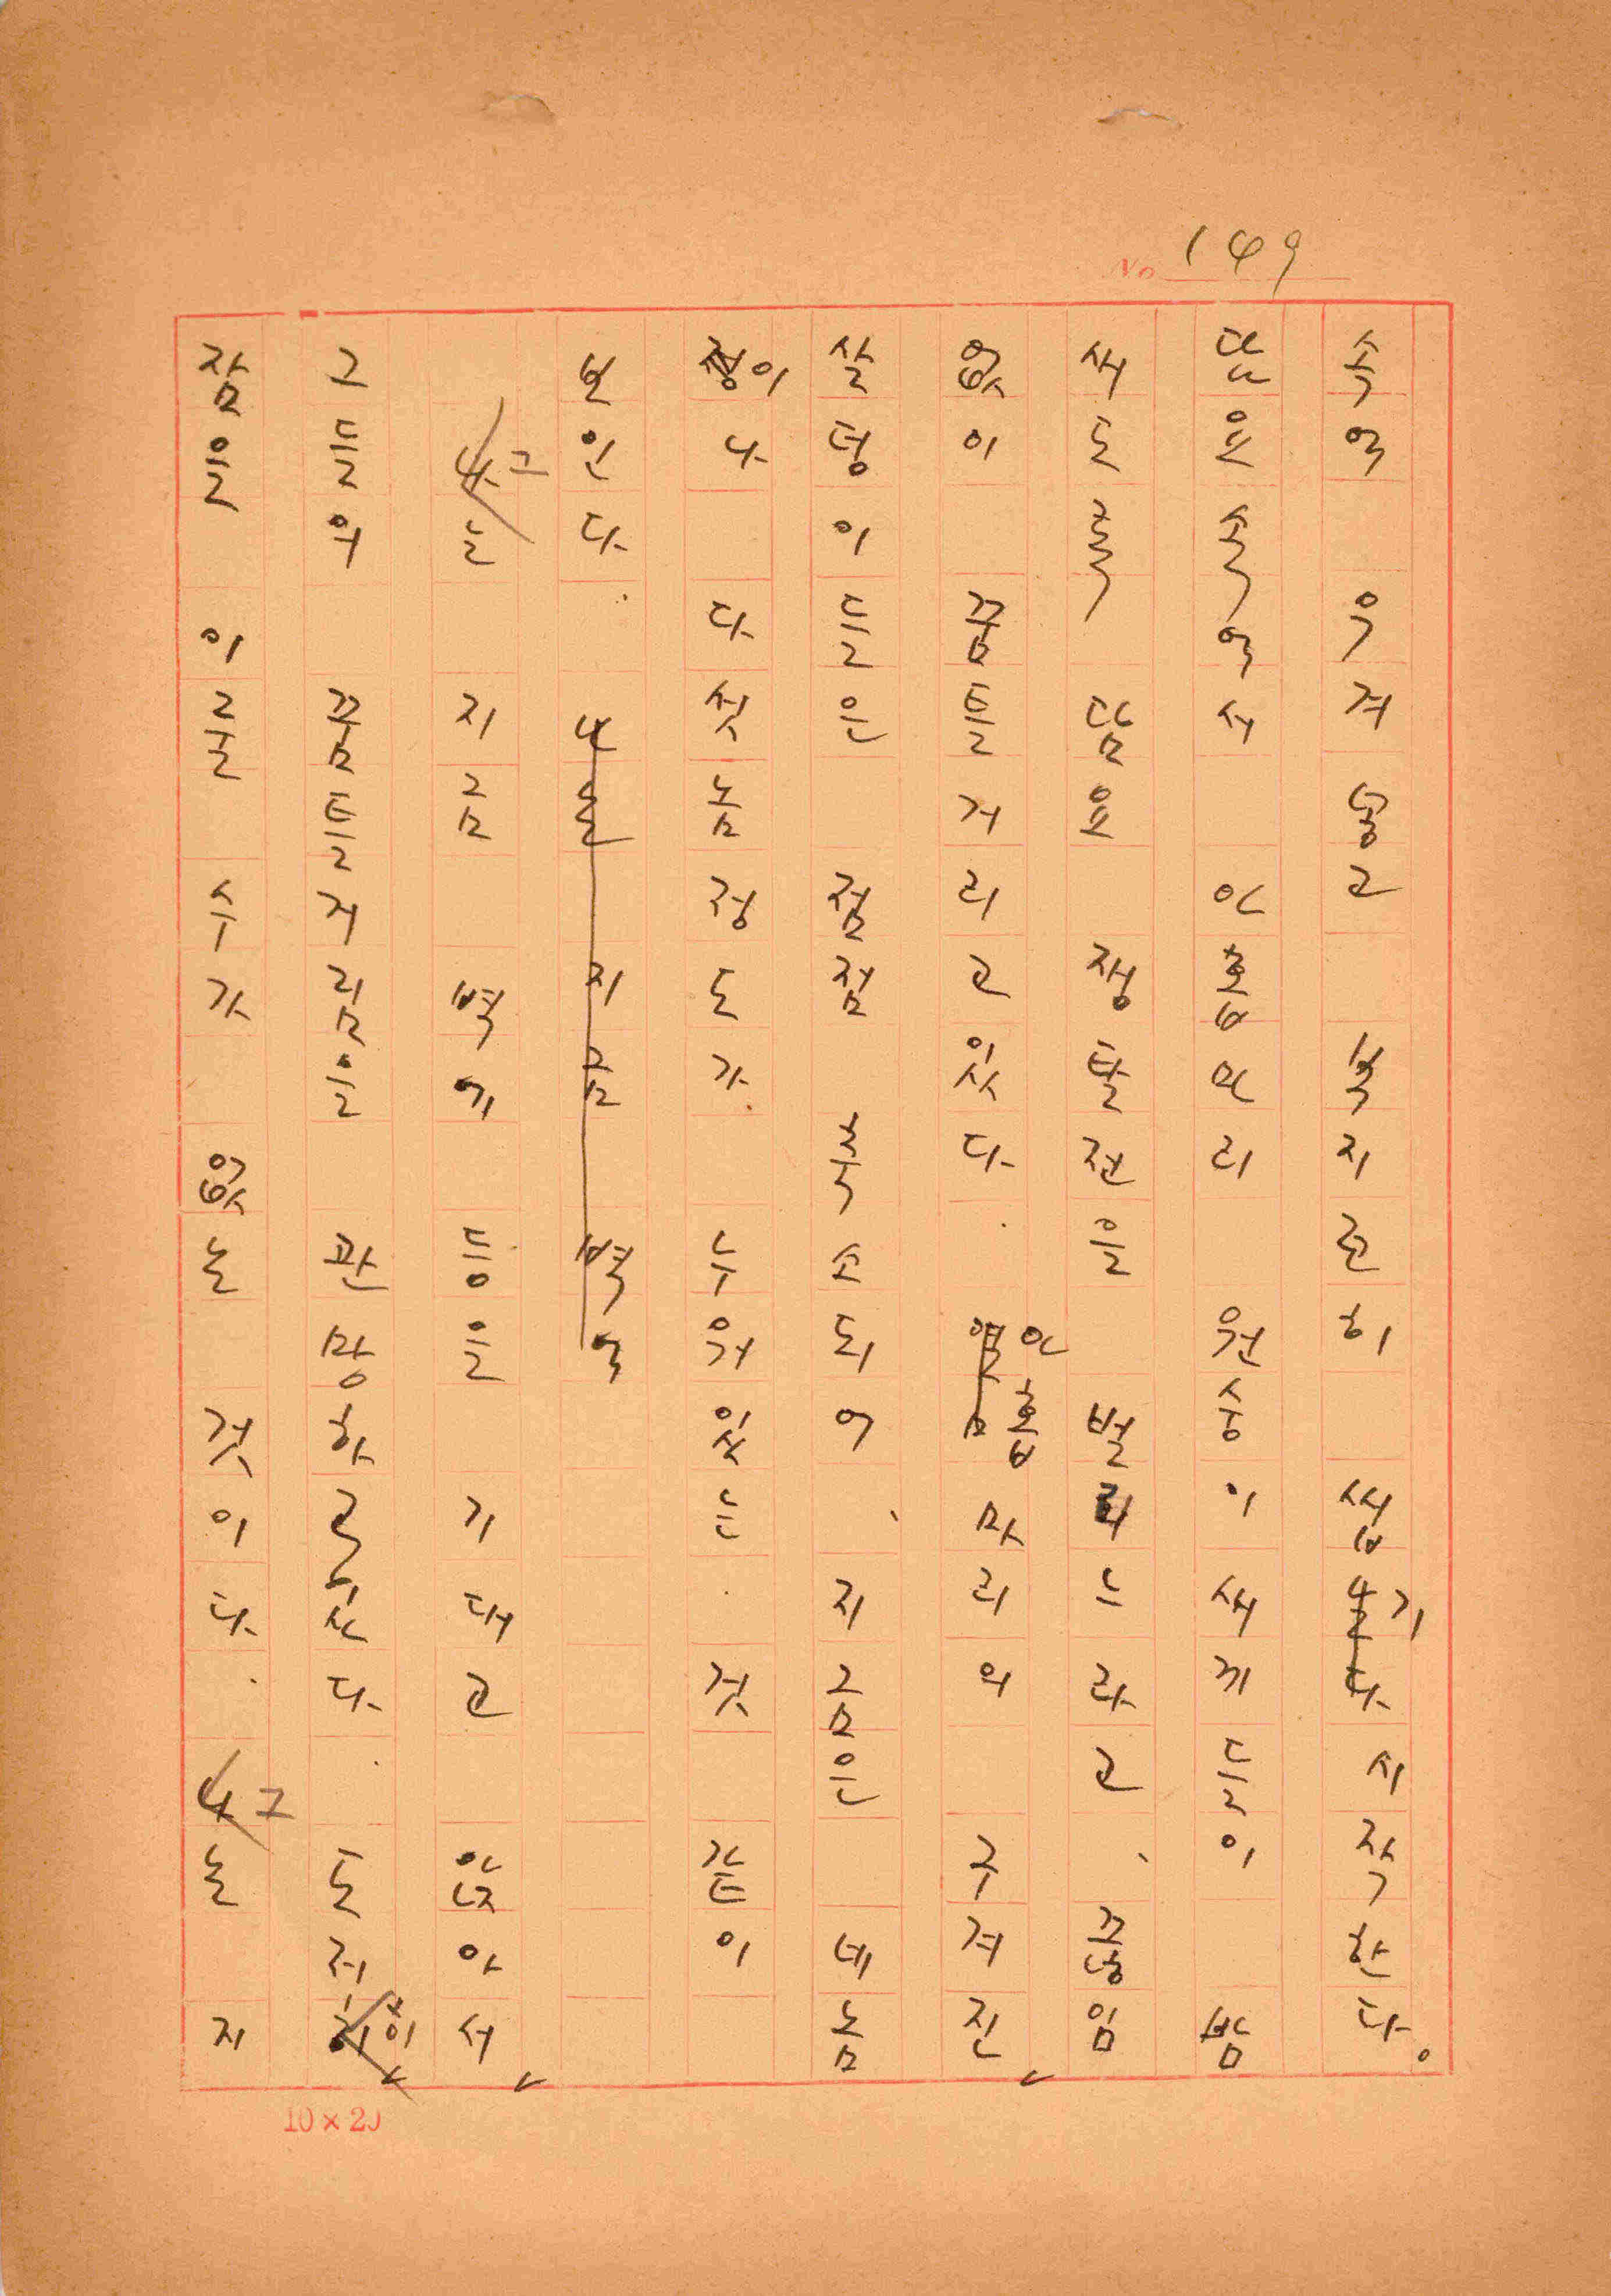 No 149
속에 우겨넣고 북지런히 씹기 시작한다.
담요속에서 아홉마리 원숭이새끼들이 밤
새도록 담요 쟁탈전을 벌리느라고、끊임
없이 꿈틀거리고 있다. 아홉마리의 구겨진
살덩이들은 점점 축소되어、지금은 네놈
이나 다섯놈정도가 누워있는 것 같이
보인다.
그는 지금 벽에 등을 기대고 앉아서
그들의 꿈틀거림을 관망하고있다. 도저히
잠을 이룰 수가 없는 것이다. 그는 지
10×20